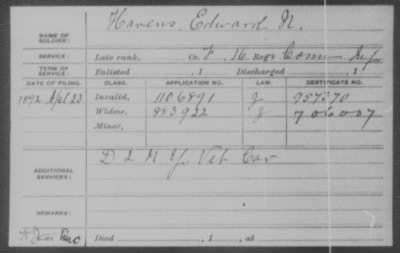 NAME OF SOLDIER: Havens, Edward N.
SERVICE: Late rank, Co. F, 16 Reg't Conn Inf
TERM OF SERVICE: Enlisted , 1 Discharged , 1
DATE OF FILING. CLASS. APPLICATION NO. LAW. CERTIFICATE NO.
1892 Apl 23 Invalid, 1106891 J 957370
Widow, 883922 J 706007
Minor,
ADDITIONAL SERVICES: D 2 N Y. Vet Cav
REMARKS:
Died , 1 , at